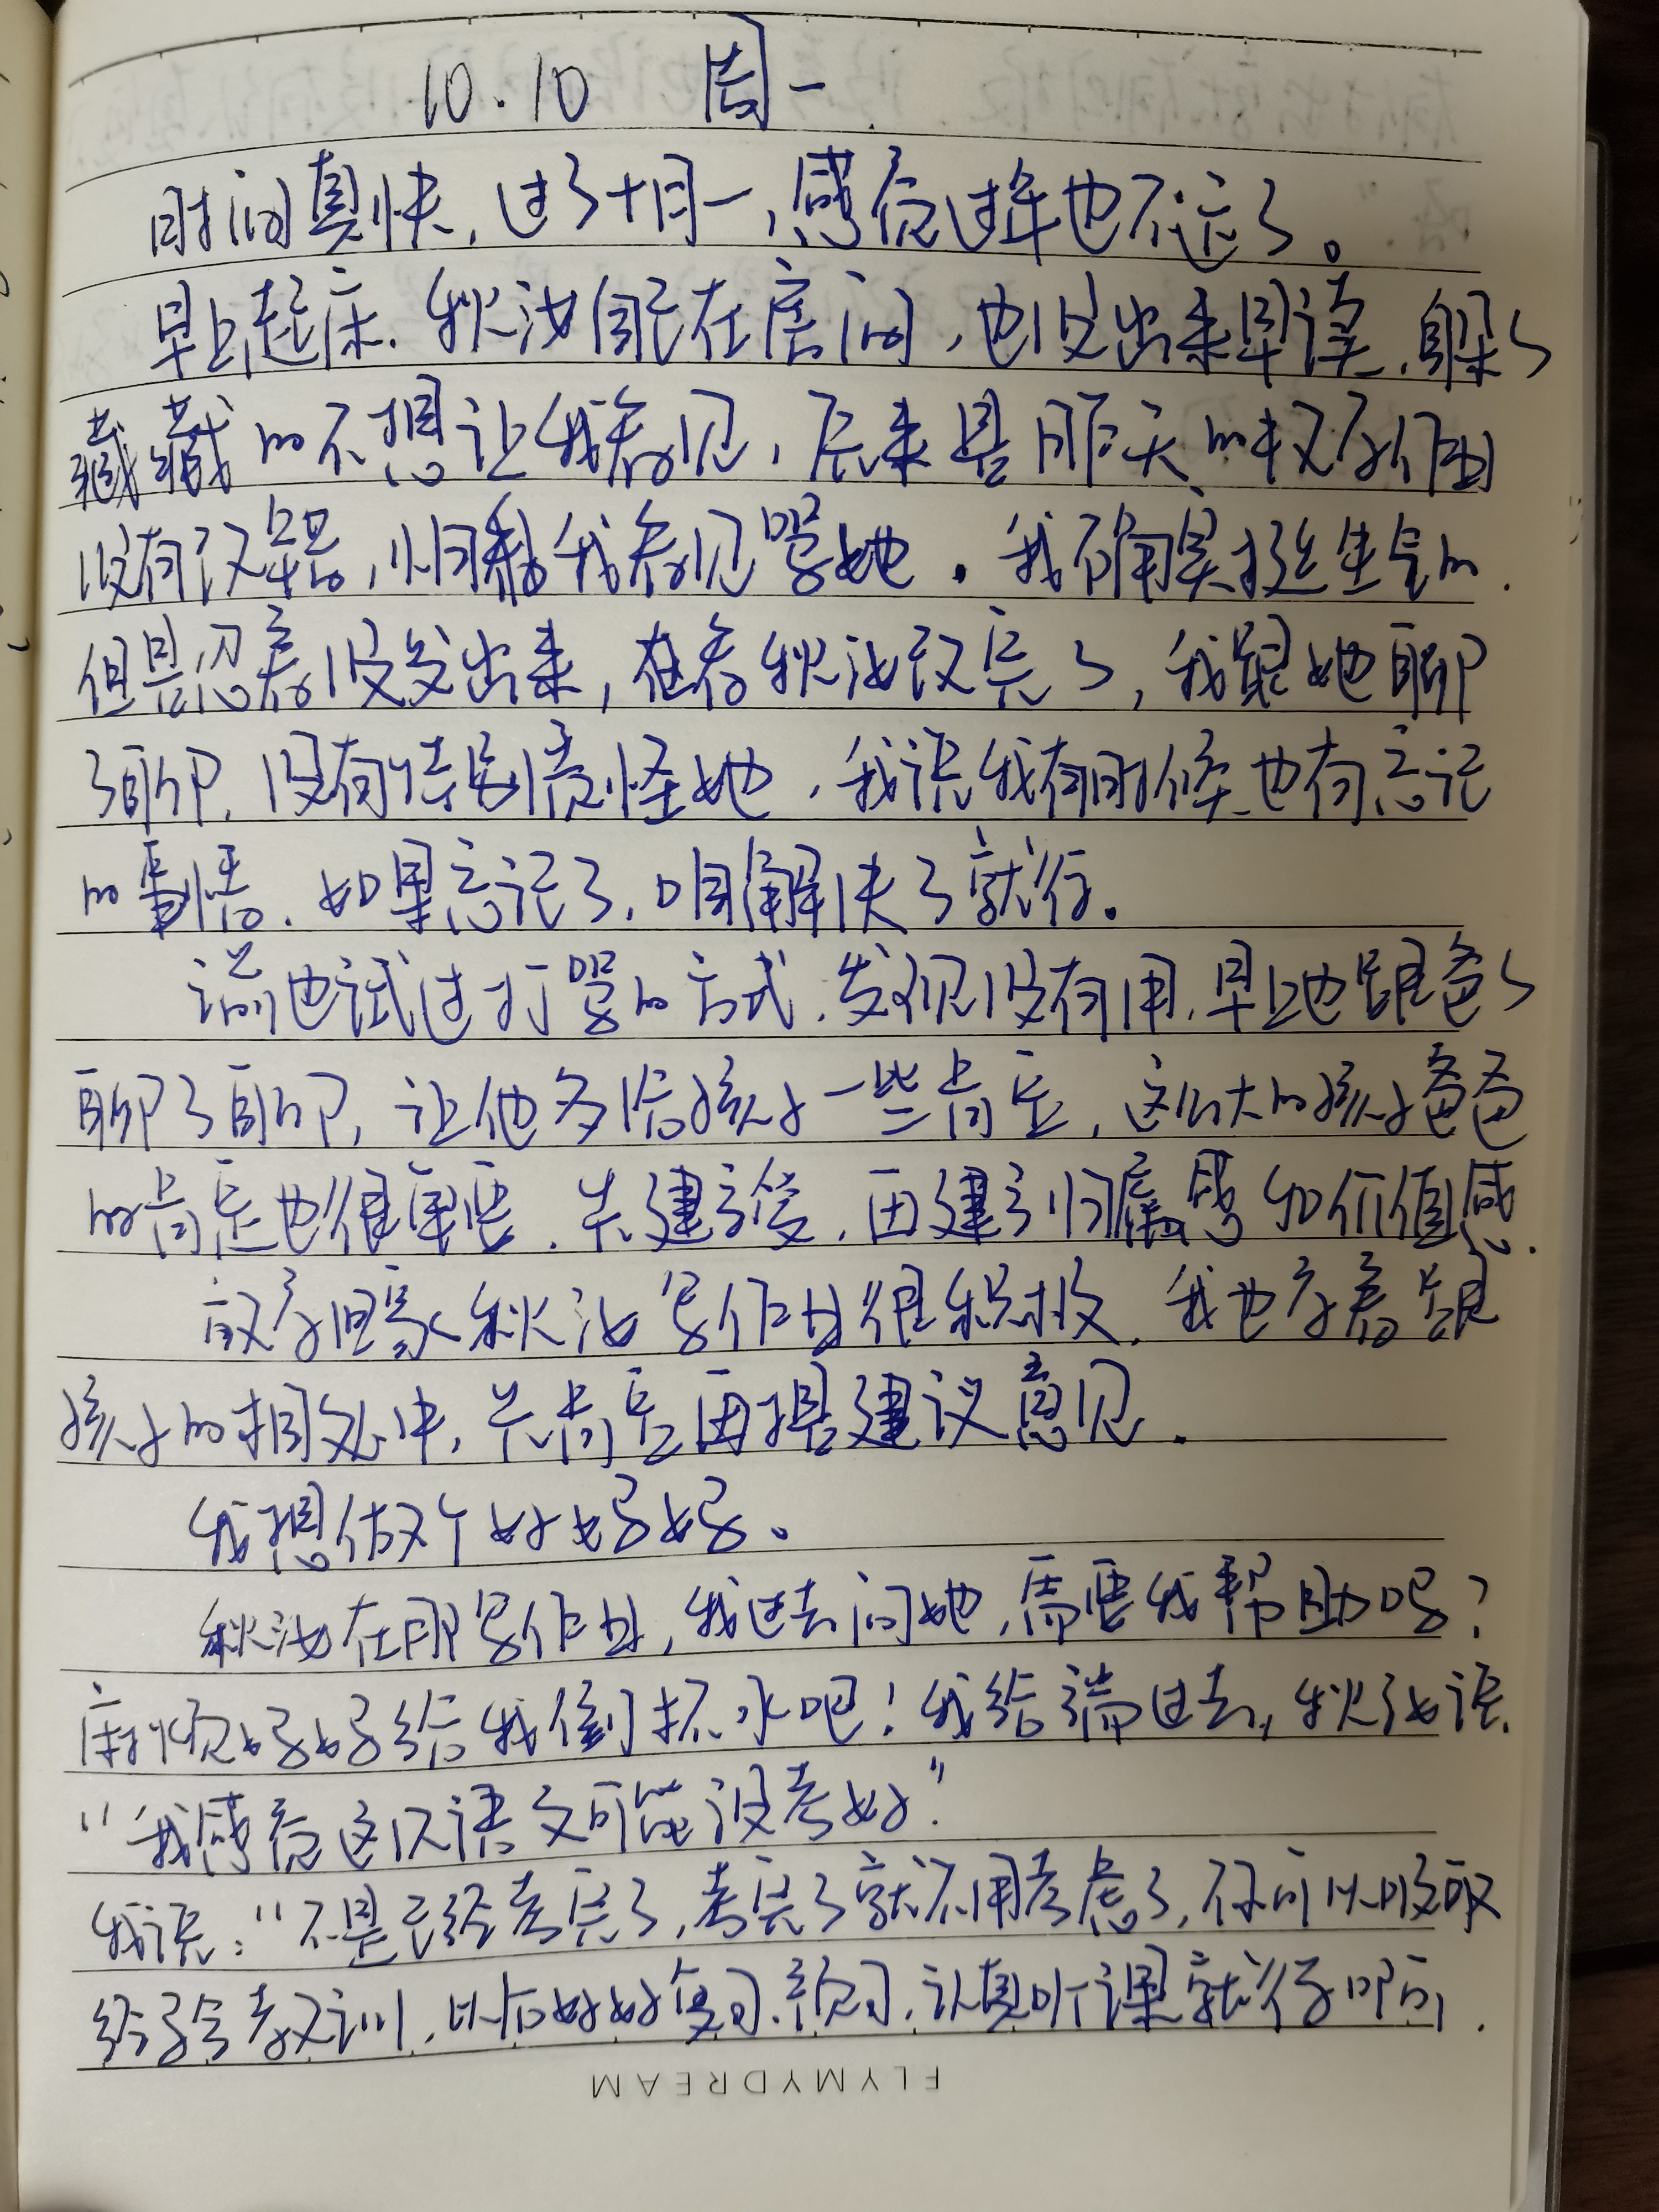 10.10 周一
时间真快,过了十月一,感觉过年也不远了。
早上起床.秋汝自己在房间,也没出来早读.躲躲
藏藏的不想让我看见,原来是昨天的校本作业
没有改错,怕我看见骂她.我确实挺生气的.
但是忍着没发出来,在看秋汝改完了,我跟她聊
了聊,没有特别责怪她,我说我有时候也有忘记
的事情.如果忘记了,咱解决了就行。
之前也试过打骂的方式.发现没有用.早上也跟爸爸
聊了聊,让他多给孩子一些肯定,这么大的孩子爸爸
的肯定也很重要.先建立爱,再建立归属感和价值感.
放学回家秋汝写作业很积极.我也学着跟
孩子的相处中,先肯定再提建议意见.
我想做个好妈妈。
秋汝在那写作业,我过去问她,需要我帮助吗?
麻烦妈妈给我倒杯水吧!我给端过去,秋汝说.
“我感觉这次语文可能没考好.”
我说:“不是已经考完了,考完了就不用考虑了,你可以吸取
经验教训,以后好好复习.预习.认真听课就行了呀.
FLYMYDREAM